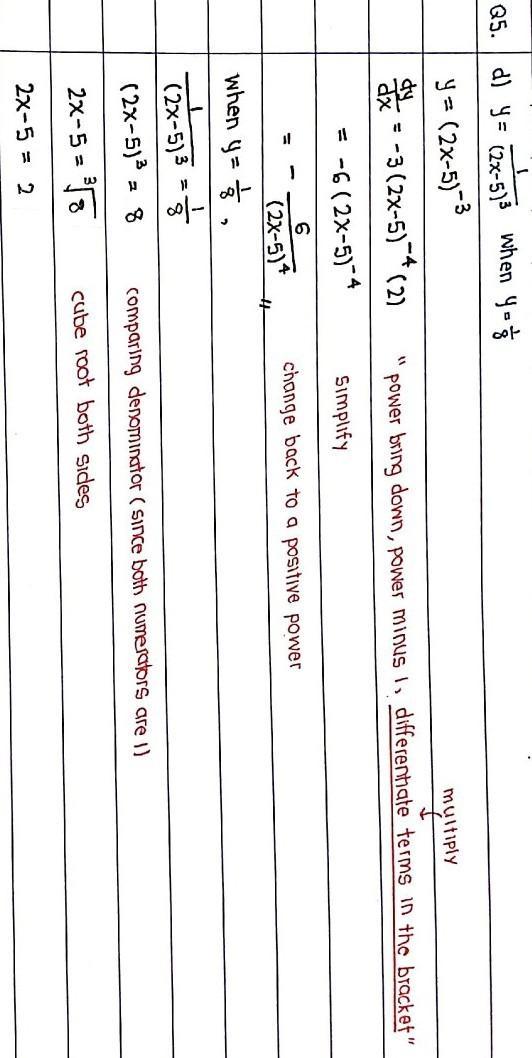 Q5. d) y = 1/(2x-5)³ when y = 1/8
y = (2x-5)⁻³
multiply
dy/dx = -3(2x-5)⁻⁴(2) "power bring down, power minus 1, differentiate terms in the bracket"
= -6(2x-5)⁻⁴ simplify
= - 6/(2x-5)⁴ change back to a positive power
when y = 1/8,
1/(2x-5)³ = 1/8
(2x-5)³ = 8 comparing denominator (since both numerators are 1)
2x-5 = ³√8 cube root both sides
2x-5 = 2